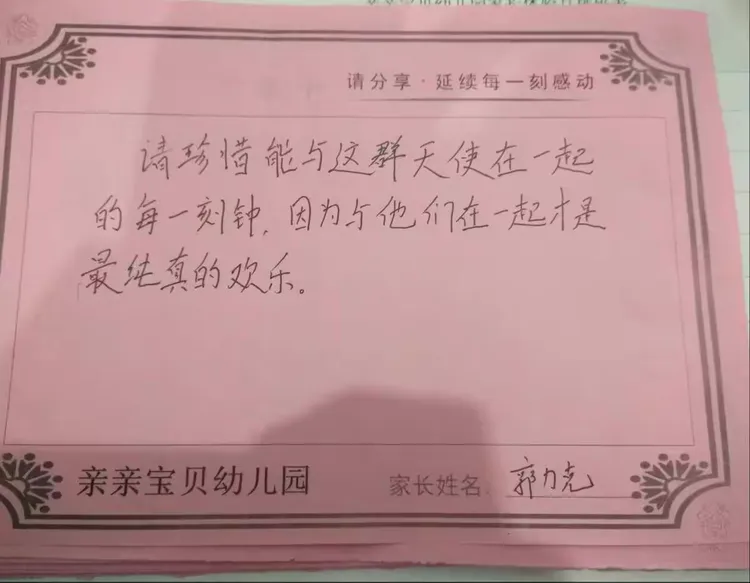 请分享·延续每一刻感动
请珍惜能与这群天使在一起
的每一刻钟,因为与他们在一起才是
最纯真的欢乐。
亲亲宝贝幼儿园
家长姓名:郭力克